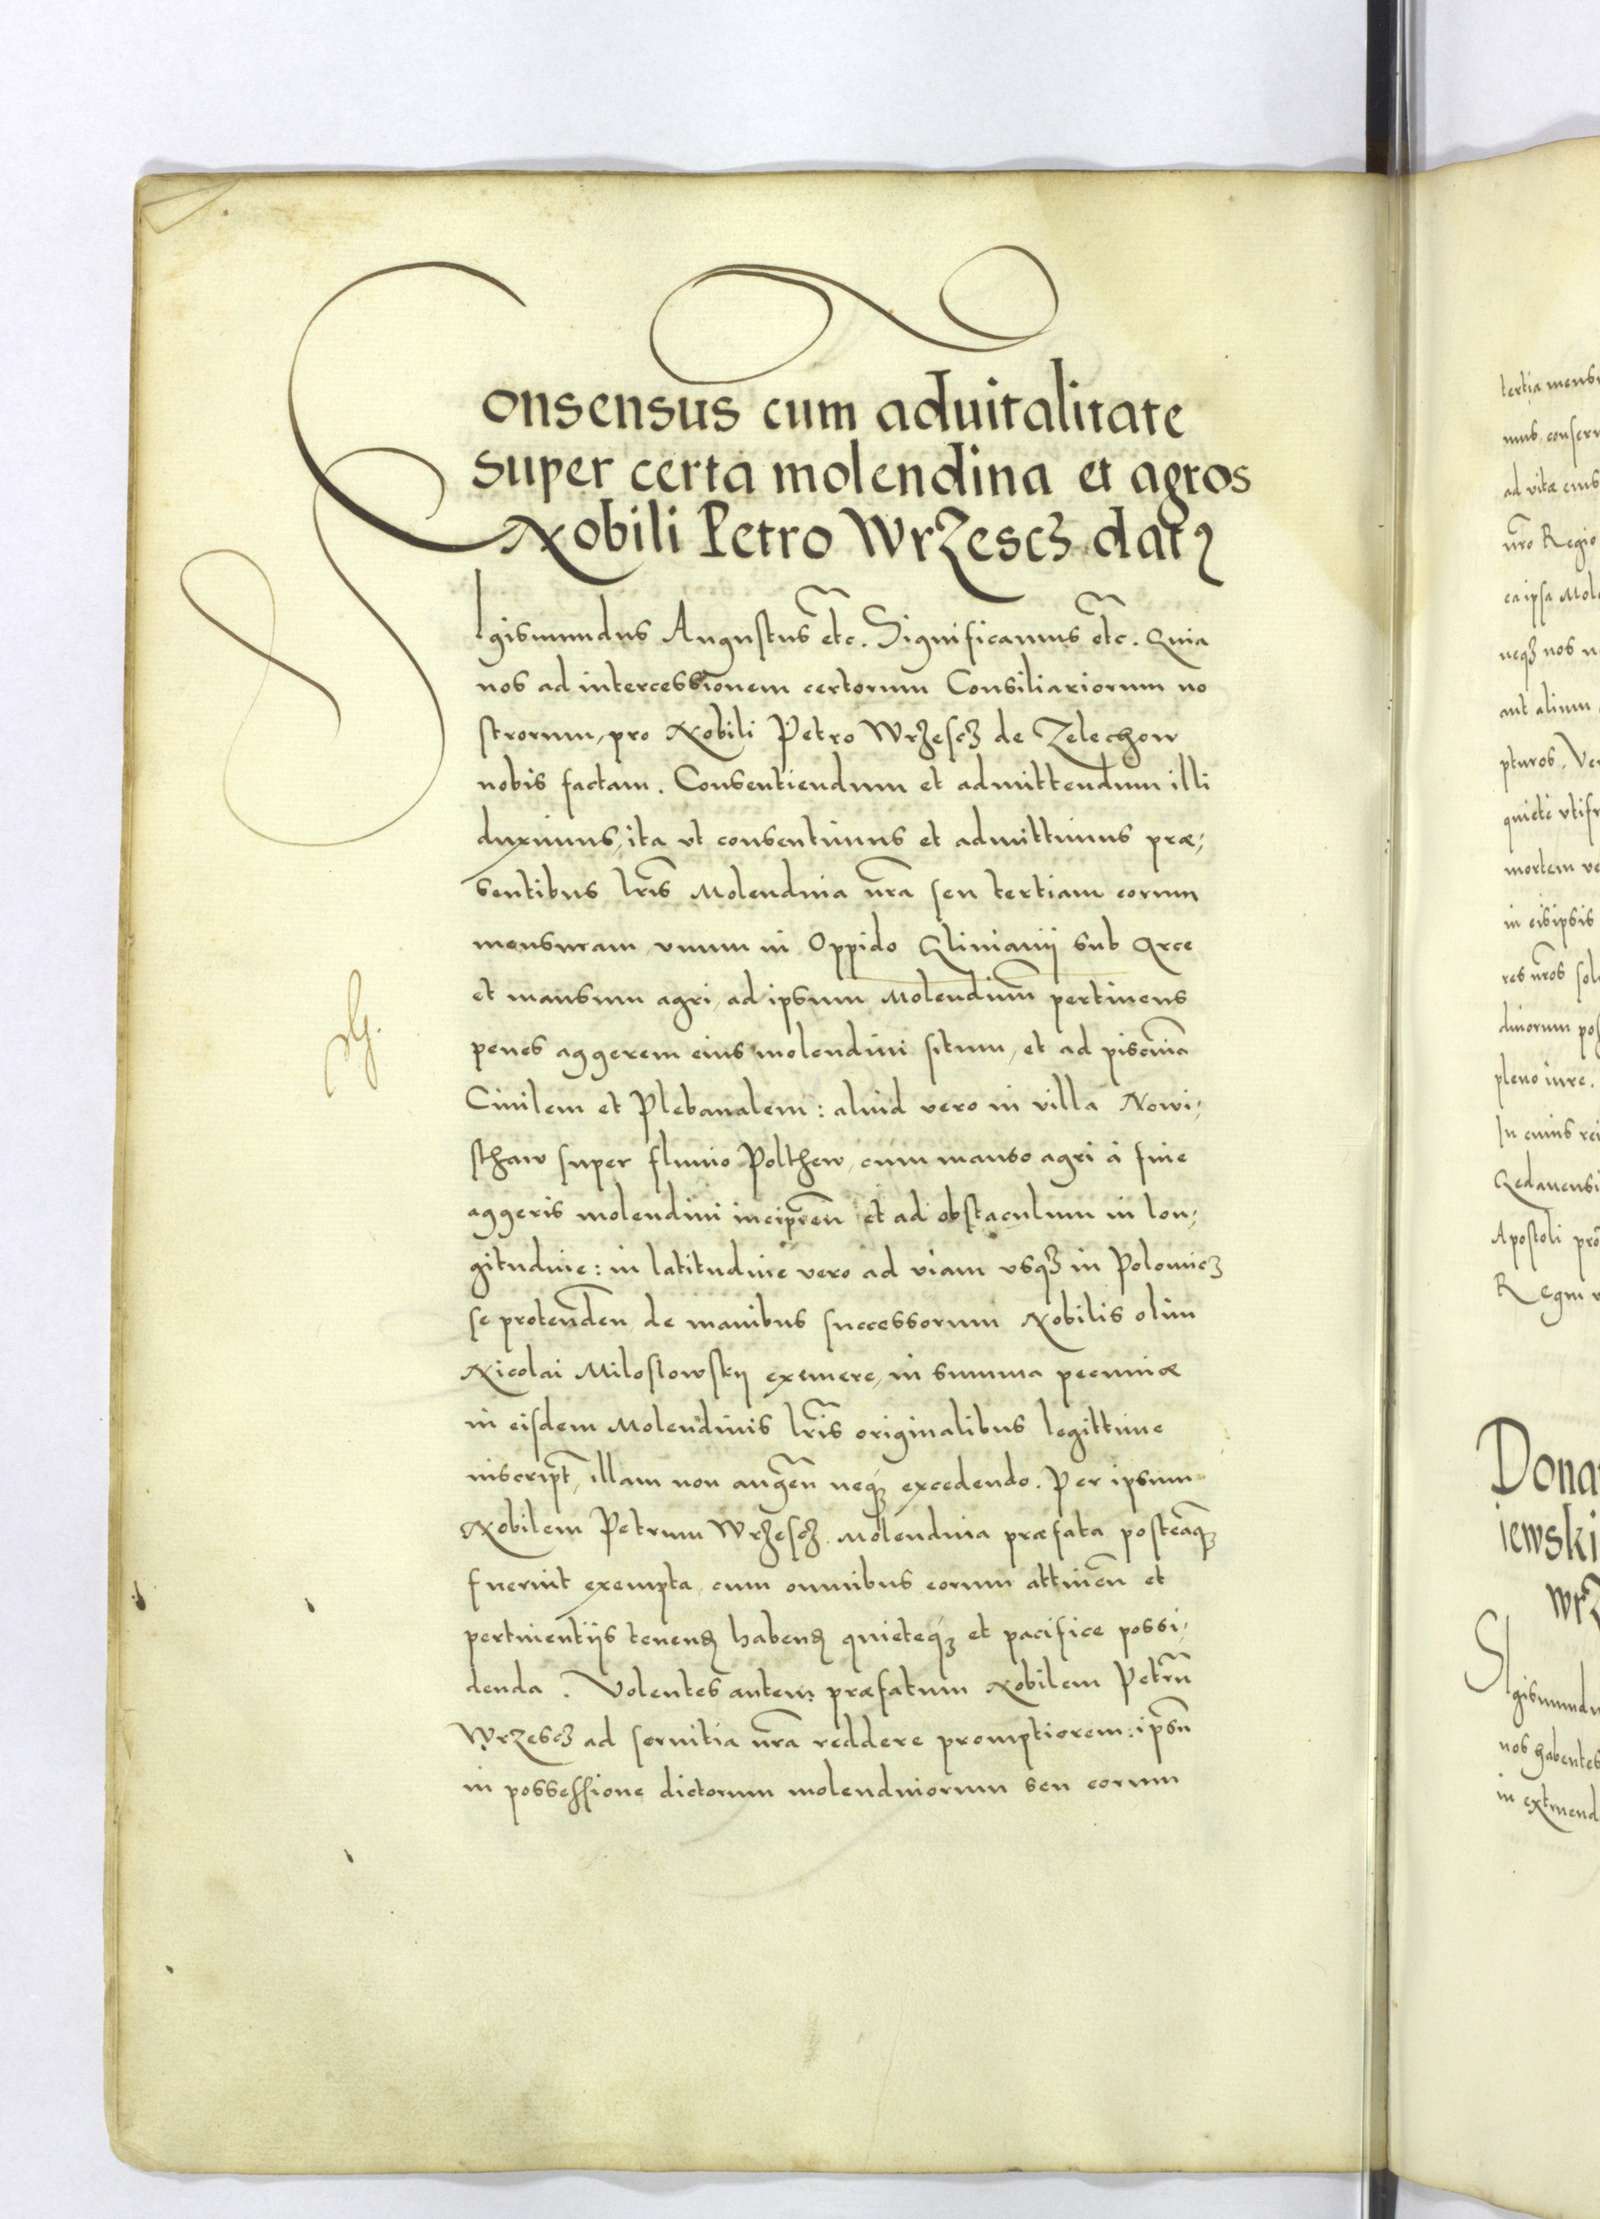 Consensus cum aduitalitate
super certa molendina et agros
Nobili Petro Wrzescz datꝰ
Sigismundus Augustus etc̃. Significamus etc̃. Quia
nos ad intercessionem certorum Consiliariorum no
strorum, pro Nobili Petro Wrzescz de Zelechow
nobis factam. Consentiendum et admittendum illi
duximus, ita vt consentimus et admittimus præ,
sentibus lr̃is Molendina nr̃a seu tertiam eorum
mensuram, vnum in Oppido Glinianij sub Arce
et mansum agri, ad ipsum Molendinũm pertinens
penes aggerem eius molendini situm, et ad piscinã
Ciuilem et Plebanalem: aliud vero in villa Nowi,
sthaw super fluuio Polthew, cum manso agri à fine
aggeris molendini incipien̄ et ad obstaculum in lon,
gitudine: in latitudine vero ad viam vsqꝫ in Polonicz
se protenden̄ de manibus successorum Nobilis olim
Nicolai Miloslowskij exımere, in summa pecuniæ
in eisdem Molendinis lr̃is originalibus legittime
inscript̃, illam non augen̄ neqꝫ excedendo. Per ipsum
Nobilem Petrum Wrzescz Molendina præfata posteaqꝫ
fuerint exempta, cum omnibus eorum attinen̄ et
pertinentijs tenen̄ haben̄ quieteqꝫ et pacifice possi,
denda. Volentes autem præfatum Nobilem Petrũ
Wrzescz ad seruitia nr̃a reddere promptiorem: ipsũ
in possessione dictorum molendinorum seu eorum
tertia
mus, conser
ad vitæ eius
nr̃o Regio
ea ipsa Mole
neqꝫ nos
aut alium
pturos. Ve
quietè vtifr
mortem ve
in eisipsis
res nr̃os sol
dinorum pos
pleno iure.
In cuius rei
Gedanensi
Apostoli pro
Regni
Dona
iewski
wrz
Sigismundu
nos habentes
in extruend